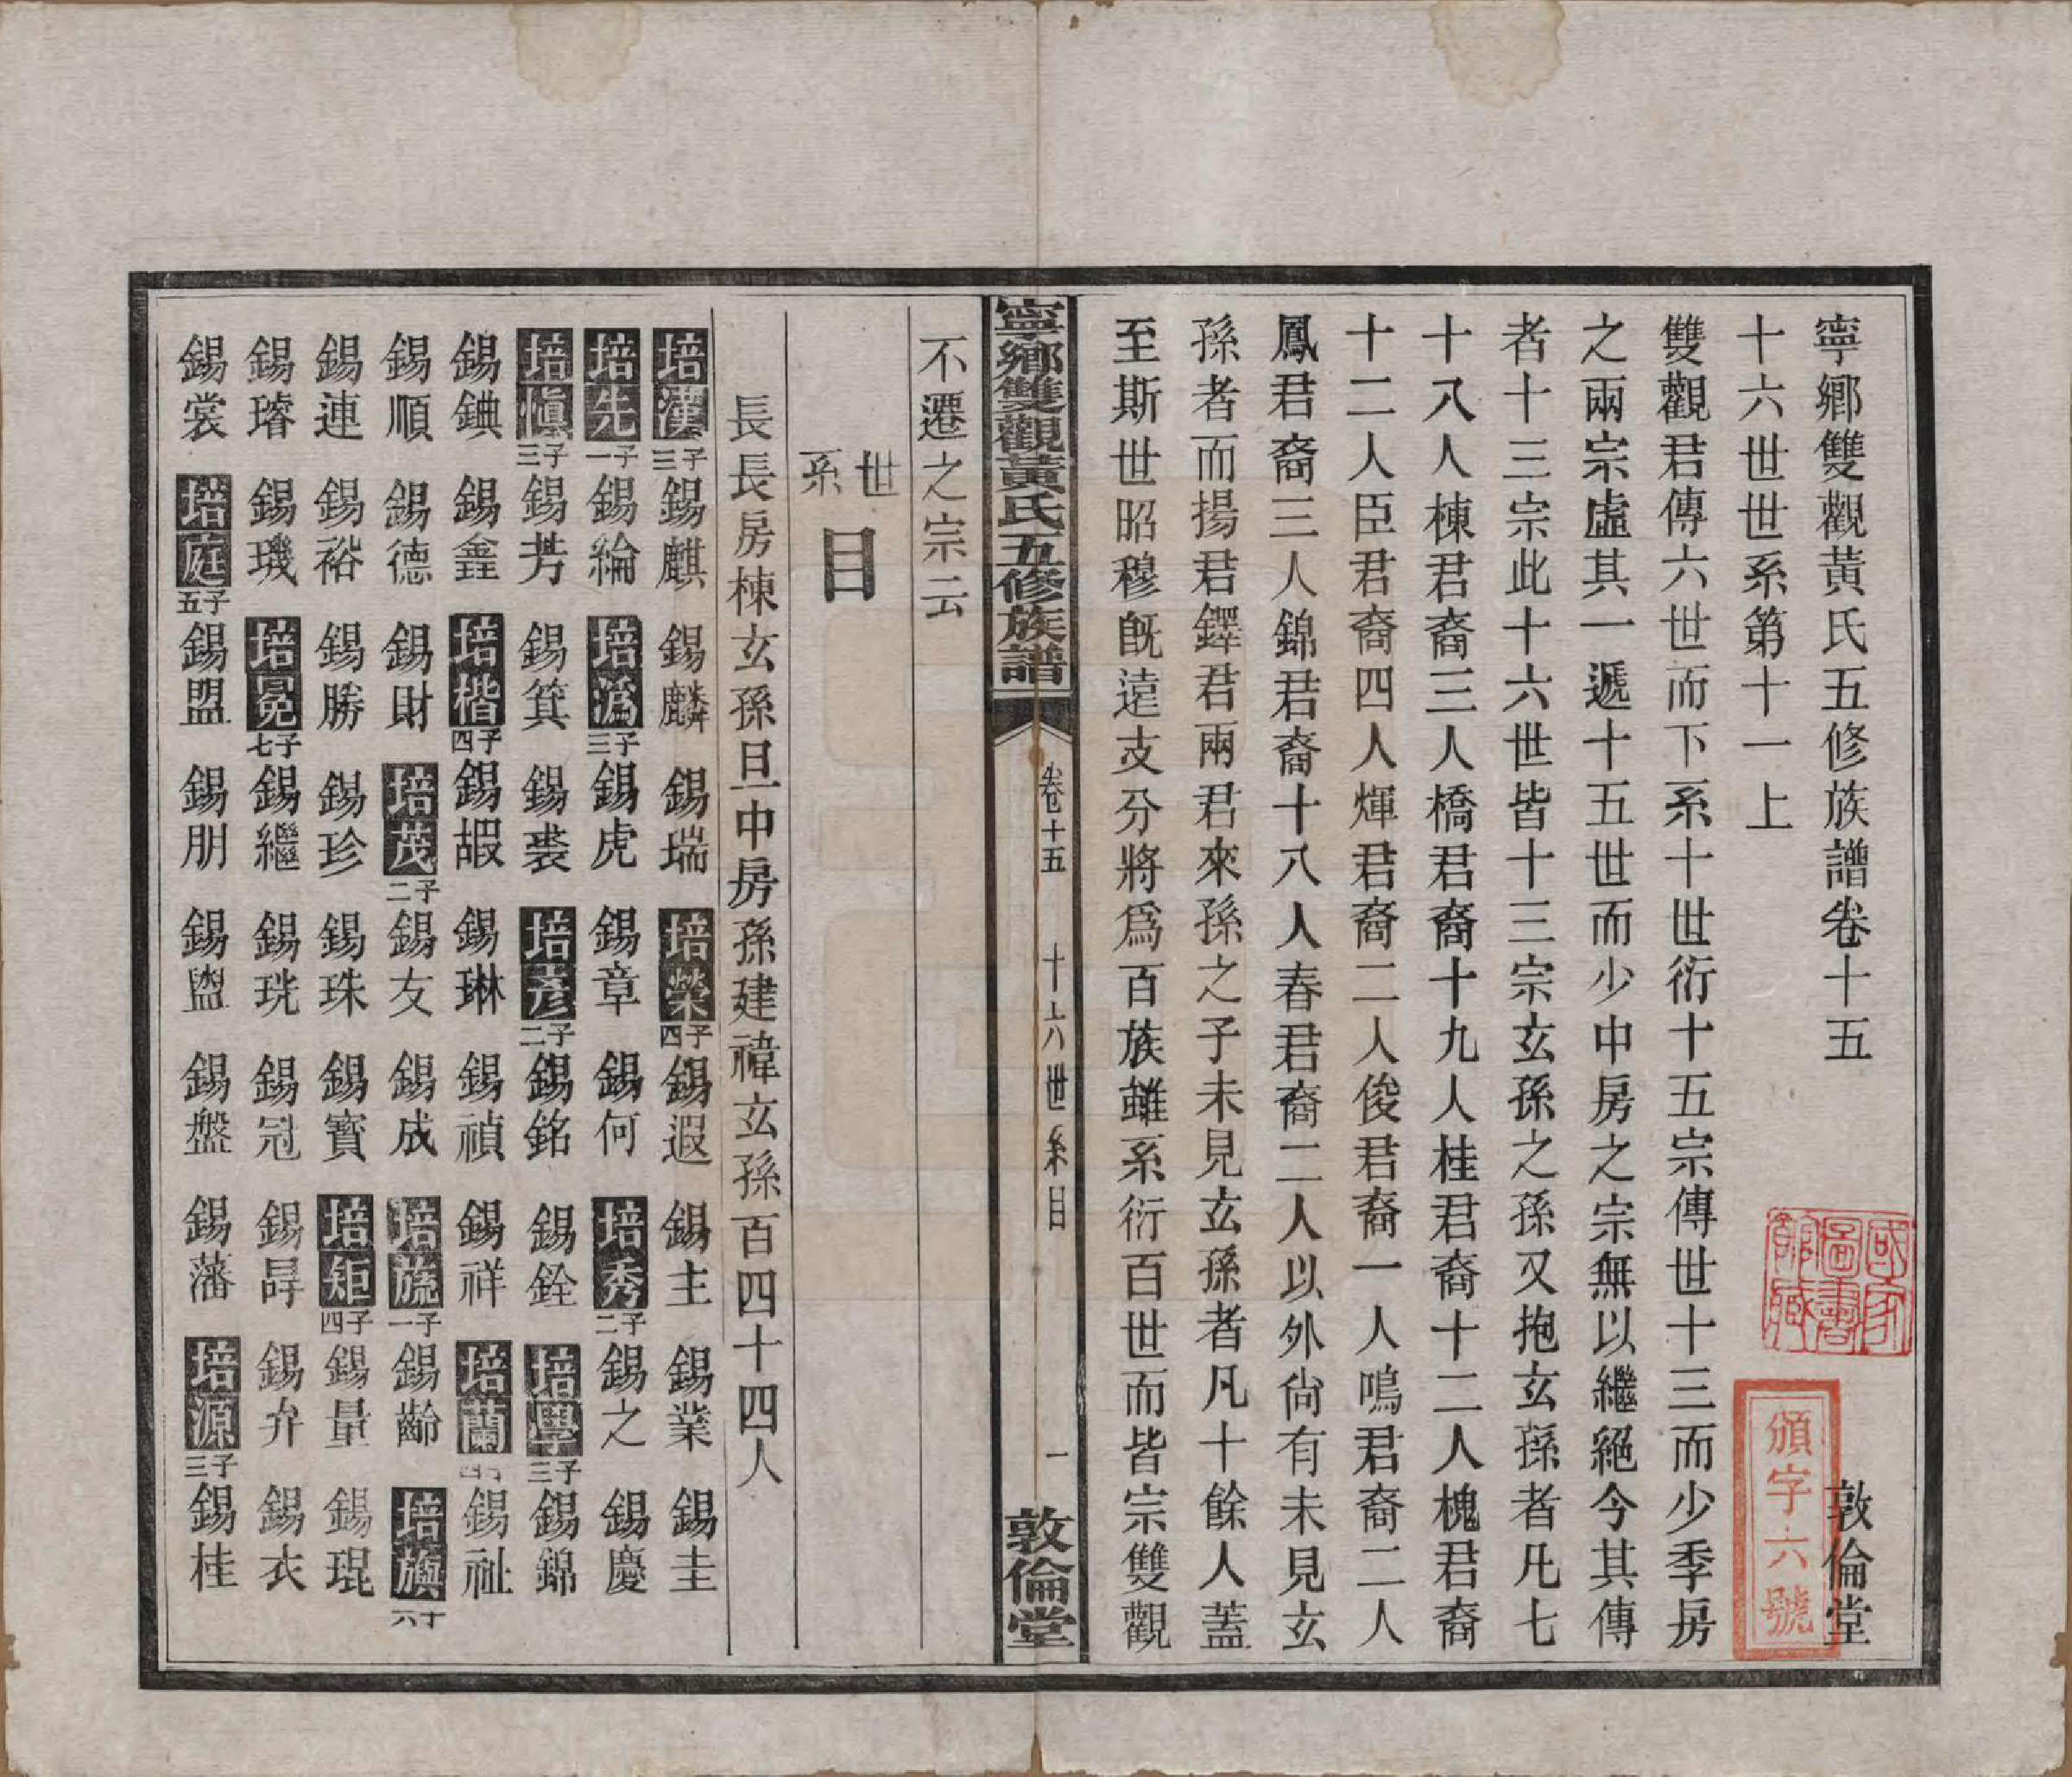 寧鄉雙觀黃氏五修族譜卷十五 敦倫堂
十六世世系第十一上
雙觀君傳六世而下系十世衍十五宗傳世十三而少季房
之兩宗虛其一遞十五世而少中房之宗無以繼絕今其傳
者十三宗此十六世皆十三宗玄孫之孫又抱玄孫者凡七
十八人棟君裔三人橋君裔十九人桂君裔十二人槐君裔
十二人臣君裔四人煇君裔二人俊君裔一人鳴君裔二人
鳳君裔三人錦君裔十八人春君裔二人以外尙有未見玄
孫者而揚君鐸君兩君來孫之子未見玄孫者凡十餘人蓋
至斯世昭穆旣遠支分將爲百族雖系衍百世而皆宗雙觀
國家圖書館藏
頒字六號
寧鄉雙觀黃氏五修族譜 卷十五 十六世系目 一 敦倫堂
不遷之宗云
世系目
長長房棟玄孫旦中房孫建禕玄孫百四十四人
培漢三子 錫麒 錫麟 錫瑞 培榮四子 錫遐 錫主 錫業 錫圭
培先一子 錫綸 培潙三子 錫虎 錫章 錫何 培秀二子 錫之 錫慶
培愼三子 錫芳 錫箕 錫裘 培彥二子 錫銘 錫銓 培學三子 錫錦
錫錪 錫鑫 培楷四子 錫嘏 錫琳 錫禎 錫祥 培蘭 錫祉
錫順 錫德 錫財 培茂二子 錫友 錫成 培旒一子 錫齡 培旟六子
錫連 錫裕 錫勝 錫珍 錫珠 錫寶 培矩四子 錫量 錫琨
錫璿 錫璣 培冕七子 錫繼 錫珖 錫冠 錫冔 錫弁 錫衣
錫裳 培庭五子 錫盟 錫朋 錫盥 錫盤 錫藩 培源三子 錫桂